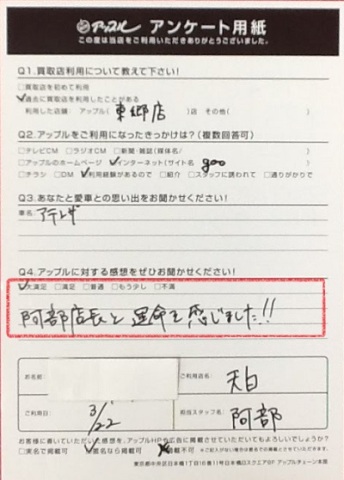 アップル アンケート用紙
この度は当店をご利用いただきありがとうございました。
Q1.買取店利用について教えて下さい!
□買取店を初めて利用
☑過去に買取店を利用したことがある
利用した店舗: アップル( 東郷店 )店 その他( )
Q2.アップルをご利用になったきっかけは?(複数回答可)
□テレビCM □ラジオCM □新聞・雑誌(媒体名/ )
□アップルのホームページ ☑インターネット(サイト名 goo )
□チラシ □DM ☑利用経験があるので □紹介 □スタッフに誘われて □通りがかりで
Q3.あなたと愛車との思い出をお聞かせください!
車名: アテンザ
Q4.アップルに対する感想をぜひお聞かせください!
☑大満足 □満足 □普通 □もう少し □不満
阿部店長と運命を感じました!!
お名前
ご利用店名: 天白
ご利用日 3/22
担当スタッフ名: 阿部
お客様に書いていただいた感想を、アップルHPや広告に掲載させていただいてもよろしいでしょうか?
□実名で掲載可 ☑匿名なら掲載可 掲載不可
東京都中央区日本橋1丁目16番11号日本橋Dスクエア5F アップルチェーン本部